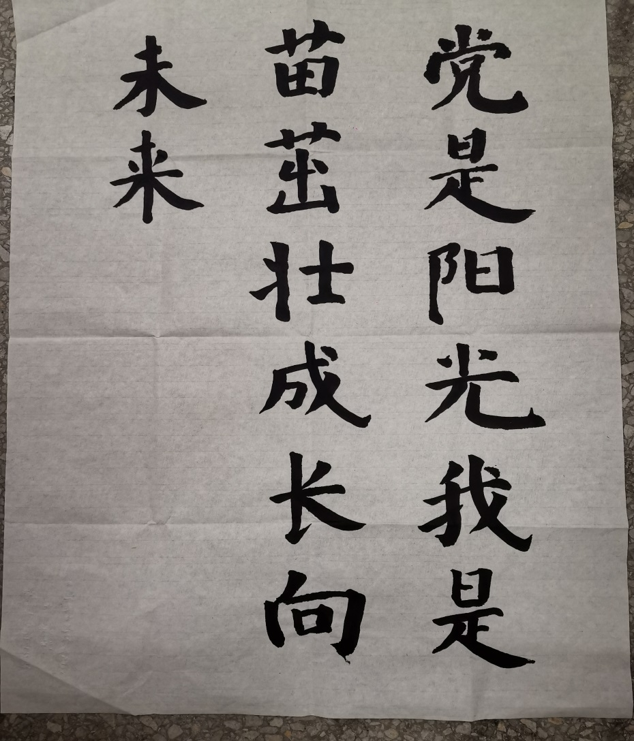 党是阳光我是
苗茁壮成长向
未来